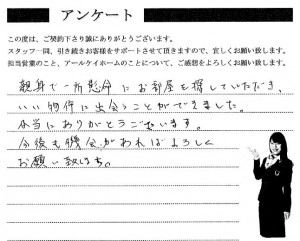 アンケート
この度は、ご契約下さり誠にありがとうございます。
スタッフ一同、引き続きお客様をサポートさせて頂きますので、宜しくお願い致します。
担当営業のこと、アールケイホームのことについて、ご感想をよろしくお願い致します。
親身で一所懸命にお部屋を探していただき、
いい物件に出会うことができました。
本当にありがとうございます。
今後も機会があればよろしく
お願い致します。